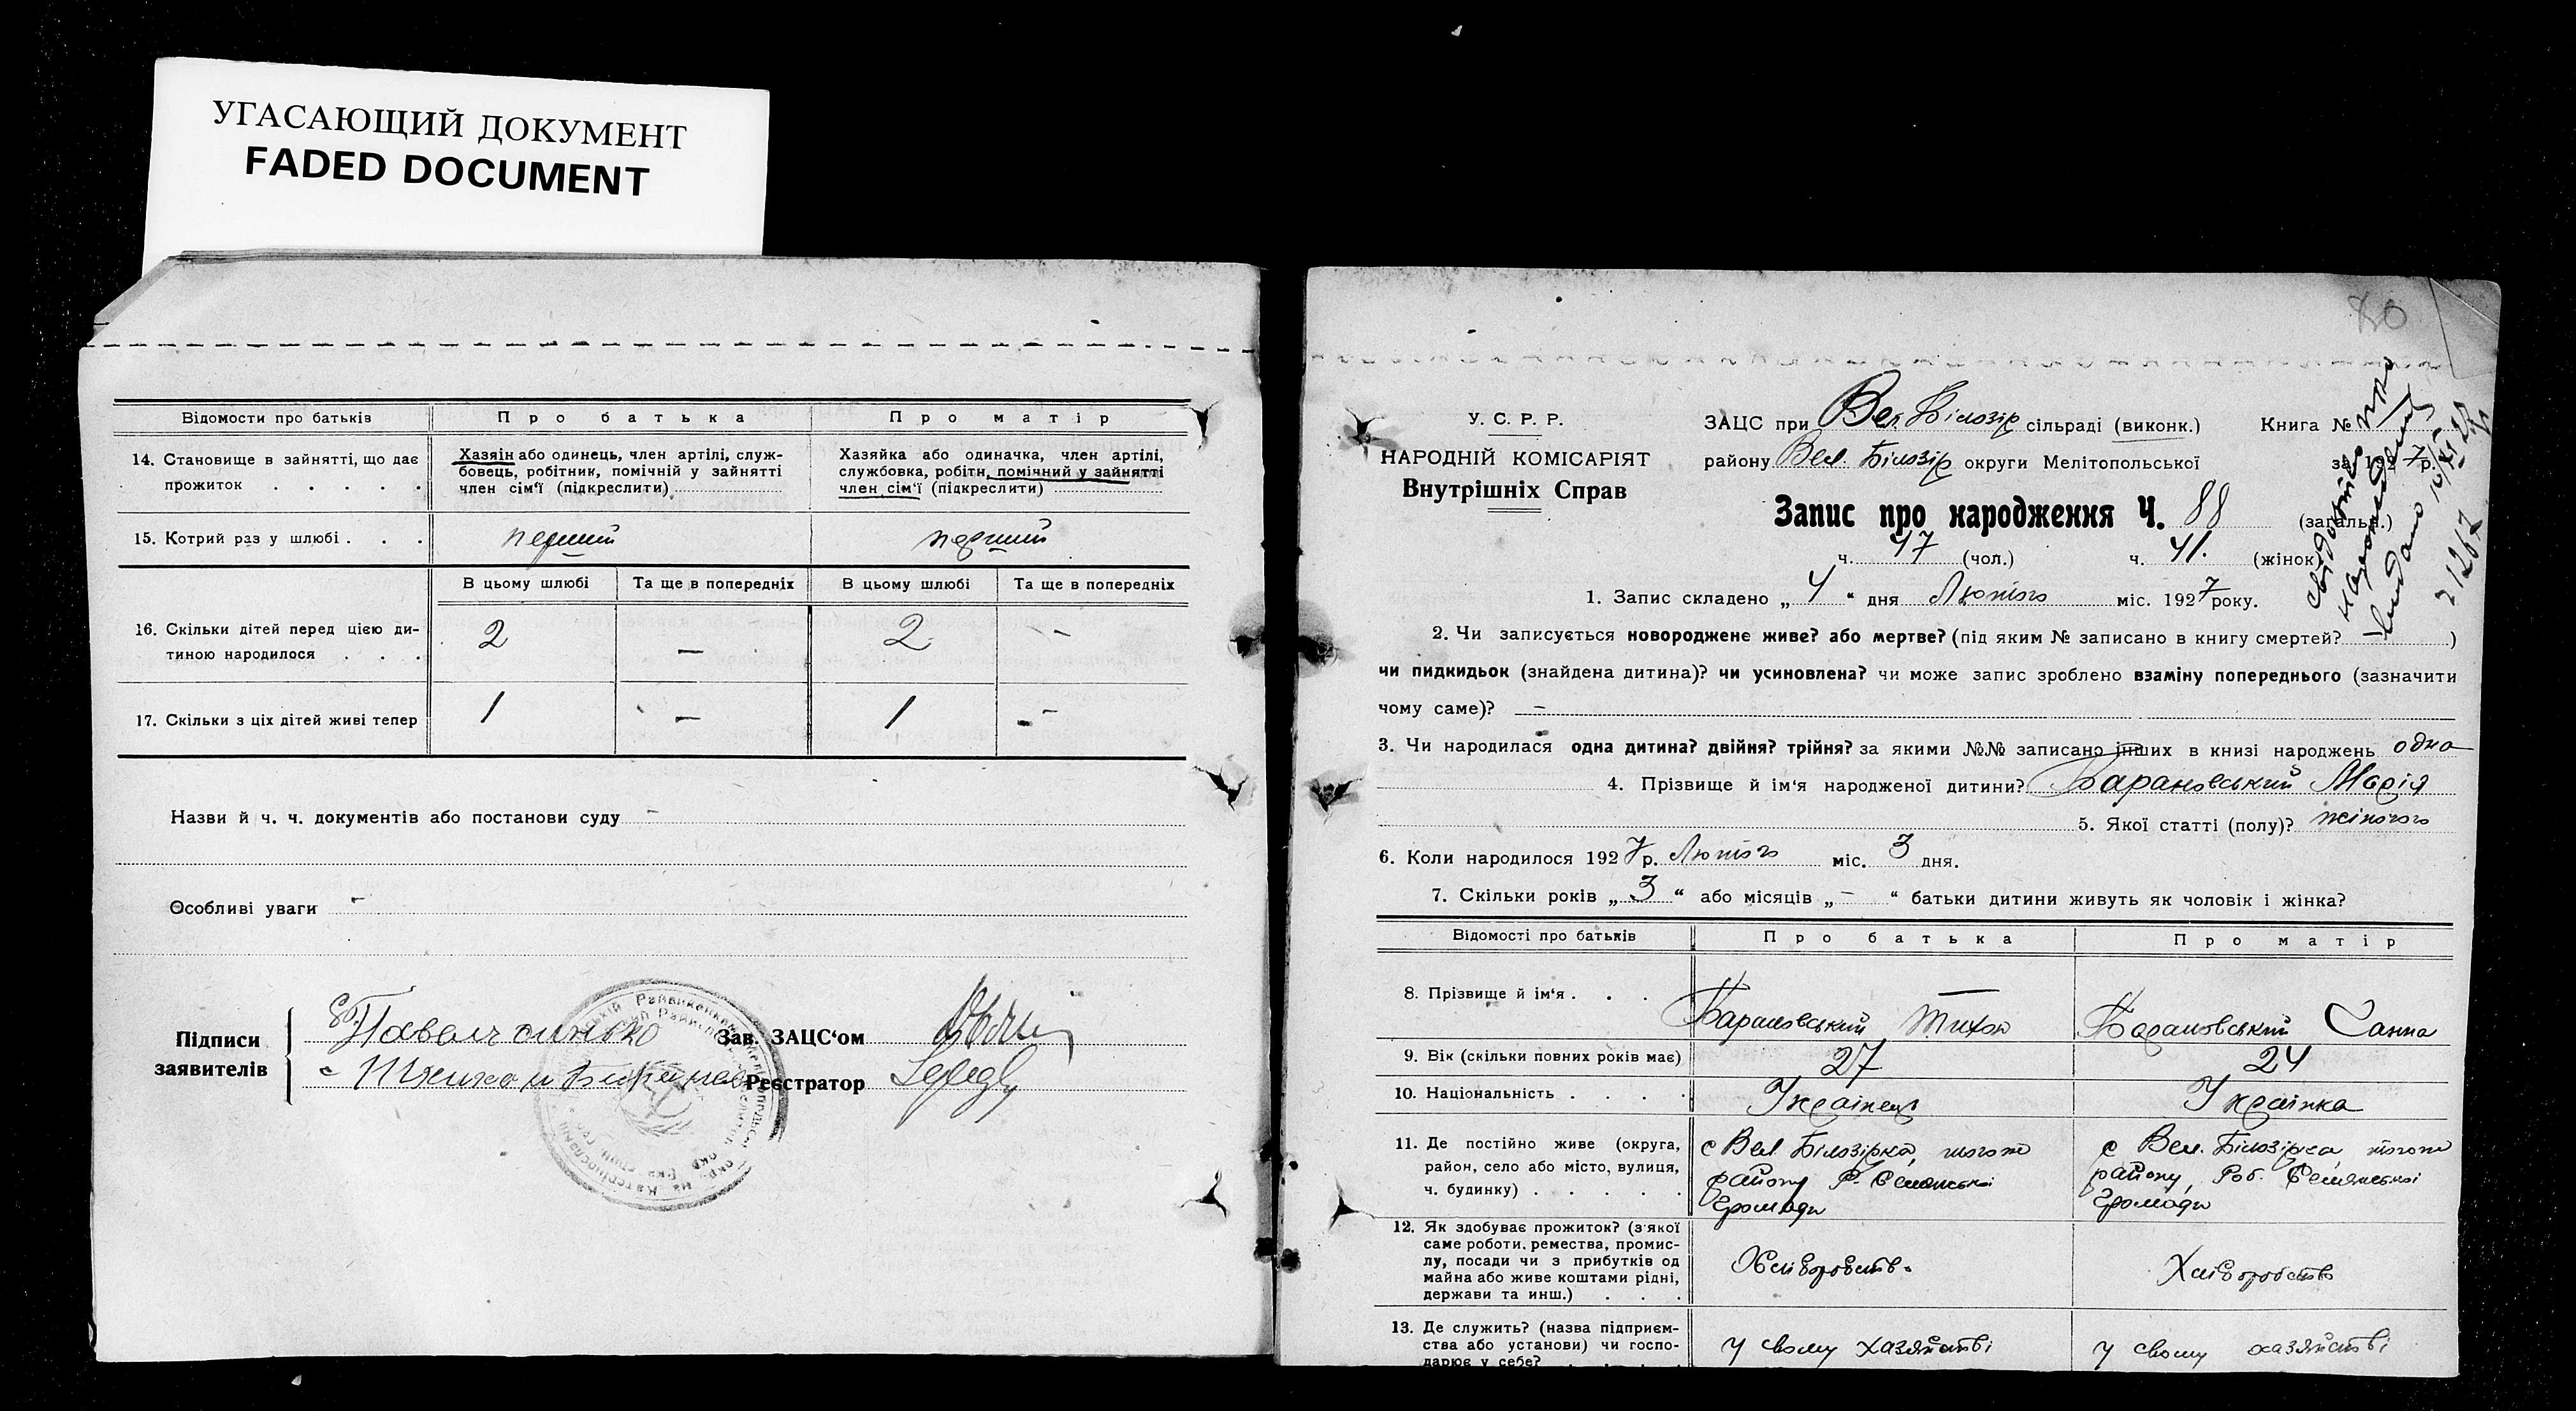 УГАСАЮЩИЙ ДОКУМЕНТ
FADED DOCUMENT
Відомости про батьків
Про батька
Про матір
14. Становище в зайнятті, що дає прожиток . . . . .
Хазяін або одинець, член артілі, служ-
бовець, робітник, помічній у зайнятті
член сім'ї (підкреслити)
Хазяйка або одиначка, член артілі,
службовка, робітн, помічний у зайнятті
член сім'ї (підкреслити)
15. Котрий раз у шлюбі . . .
перший
перший
В цьому шлюбі
Та ще в попередніх
В цьому шлюбі
Та ще в попередніх
16. Скільки дітей перед цією ди-
тиною народилося . . .
2
—
2
—
17. Скільки з ціх дітей живі тепер
1
—
1
—
Назви й ч. ч. документів або постанови суду –
Особливі уваги –
Підписи
заявителів
Зав. ЗАЦС'ом
Реєстратор
80
У. С. Р. Р.
НАРОДНІЙ КОМІСАРІЯТ
Внутрішніх Справ
ЗАЦС при Вел. Білозір сільраді (виконк.) Книга №
району Вел. Білозір округи Мелітопольської за 1927 р.
Запис про народження Ч. 88 (загальн.)
ч. 47 (чол.) ч. 41. (жінок)
1. Запис складено „ 4 “ дня Лютого міс. 1927 року.
2. Чи записується новороджене живе? або мертве? (під яким № записано в книгу смертей? )
чи пидкидьок (знайдена дитина)? чи усиновлена? чи може запис зроблено взаміну попереднього (зазначити
чому саме)? –
3. Чи народилася одна дитина? двійня? трійня? за якими №№ записано інших в книзі народжень одна
4. Прізвище й ім'я народженої дитини? Барановський Марія
5. Якої статті (полу)? жіночого
6. Коли народилося 1927 р. Лютого міс. 3 дня.
7. Скільки років „ 3 “ або місяців „ – “ батьки дитини живуть як чоловік і жінка?
Відомості про батьків
Про батька
Про матір
8. Прізвище й ім'я . . .
Барановський Тихон
Барановський Ганна
9. Вік (скільки повних років має)
27
24
10. Національність . . . .
Українець
Українка
11. Де постійно живе (округа,
район, село або місто, вулиця,
ч. будинку) . . . . .
с Вел. Білозірка, тогож
району Р. Селянської
Громади
с Вел. Білозірка, тогож
району, Роб. Селянської
Громади
12. Як здобуває прожиток? (з якої
саме роботи, ремества, промис-
лу, посади чи з прибутків од
майна або живе коштами рідні,
держави та инш.) . . .
Хліборобств.
Хліборобство
13. Де служить? (назва підприєм-
ства або установи) чи госпо-
дарює у себе? . . . .
у свому хазяйстві
у свому хазяйстві